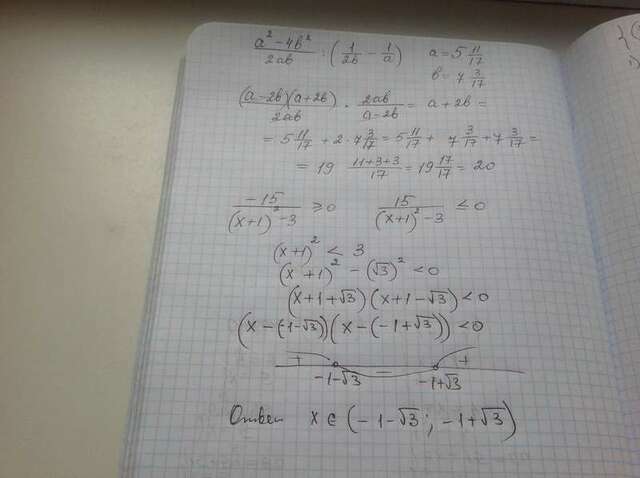 (a² - 4b²)/(2ab) : (1/(2b) - 1/a) a = 5 11/17
b = 7 3/17
(a-2b)(a+2b)/(2ab) · 2ab/(a-2b) = a + 2b =
= 5 11/17 + 2 · 7 3/17 = 5 11/17 + 7 3/17 + 7 3/17 =
= 19 (11+3+3)/17 = 19 17/17 = 20
-15/((x+1)² - 3) ≥ 0 15/((x+1)² - 3) ≤ 0
(x+1)² < 3
(x+1)² - (√3)² < 0
(x+1+√3)(x+1-√3) < 0
(x-(-1-√3))(x-(-1+√3)) < 0
+ - +
-1-√3 -1+√3
Ответ x ∈ (-1-√3; -1+√3)